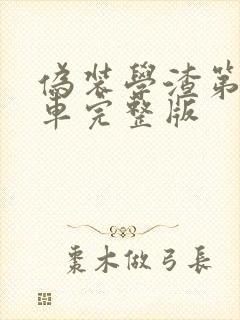 偽裝學渣第
車完整版
棗木做弓長